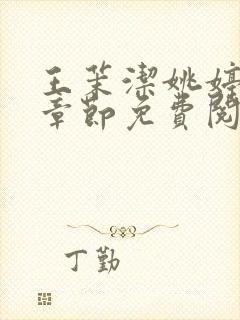 王茉潔姚婷
章節免費閱
丁勤